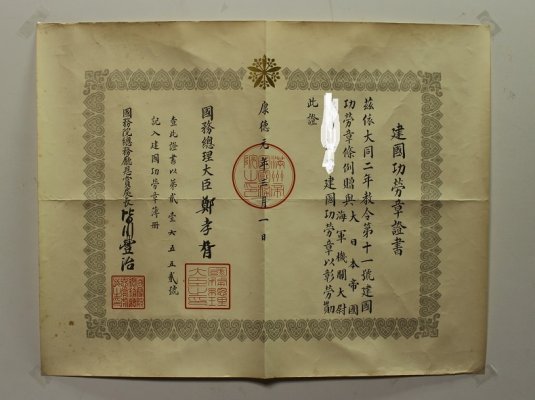 建國功勞章證書
茲依大同二年敎令第十一號建國
功勞章條例贈與大日本帝國
海軍機關大尉
建國功勞章以彰勞勛
此證
康德元年三月一日
國務總理大臣 鄭孝胥
查此證書以第貳壹六五五貳號
記入建國功勞章簿冊
國務院總務廳恩賞處長 皆川豐治